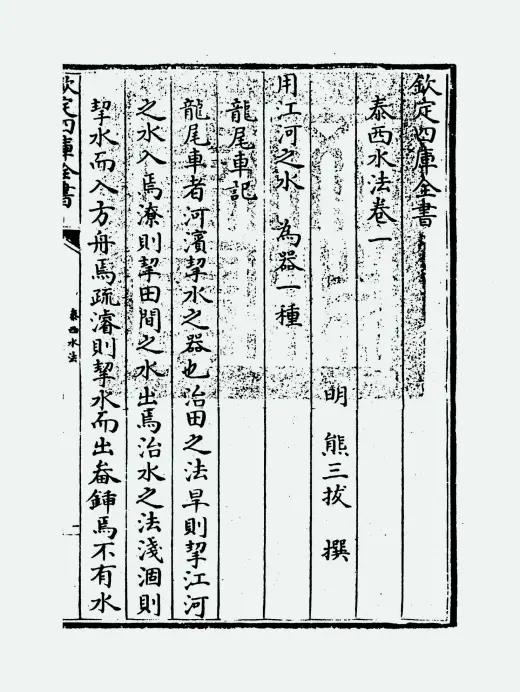 欽定四庫全書
泰西水法卷一
明 熊三拔 撰
用江河之水 為器一種
龍尾車記
龍尾車者河濱挈水之器也治田之法旱則挈江河
之水入焉潦則挈田間之水出焉治水之法淺涸則
挈水而入方舟焉疏濬則挈水而出畚鍤焉不有水
欽定四庫全書
泰西水法
一